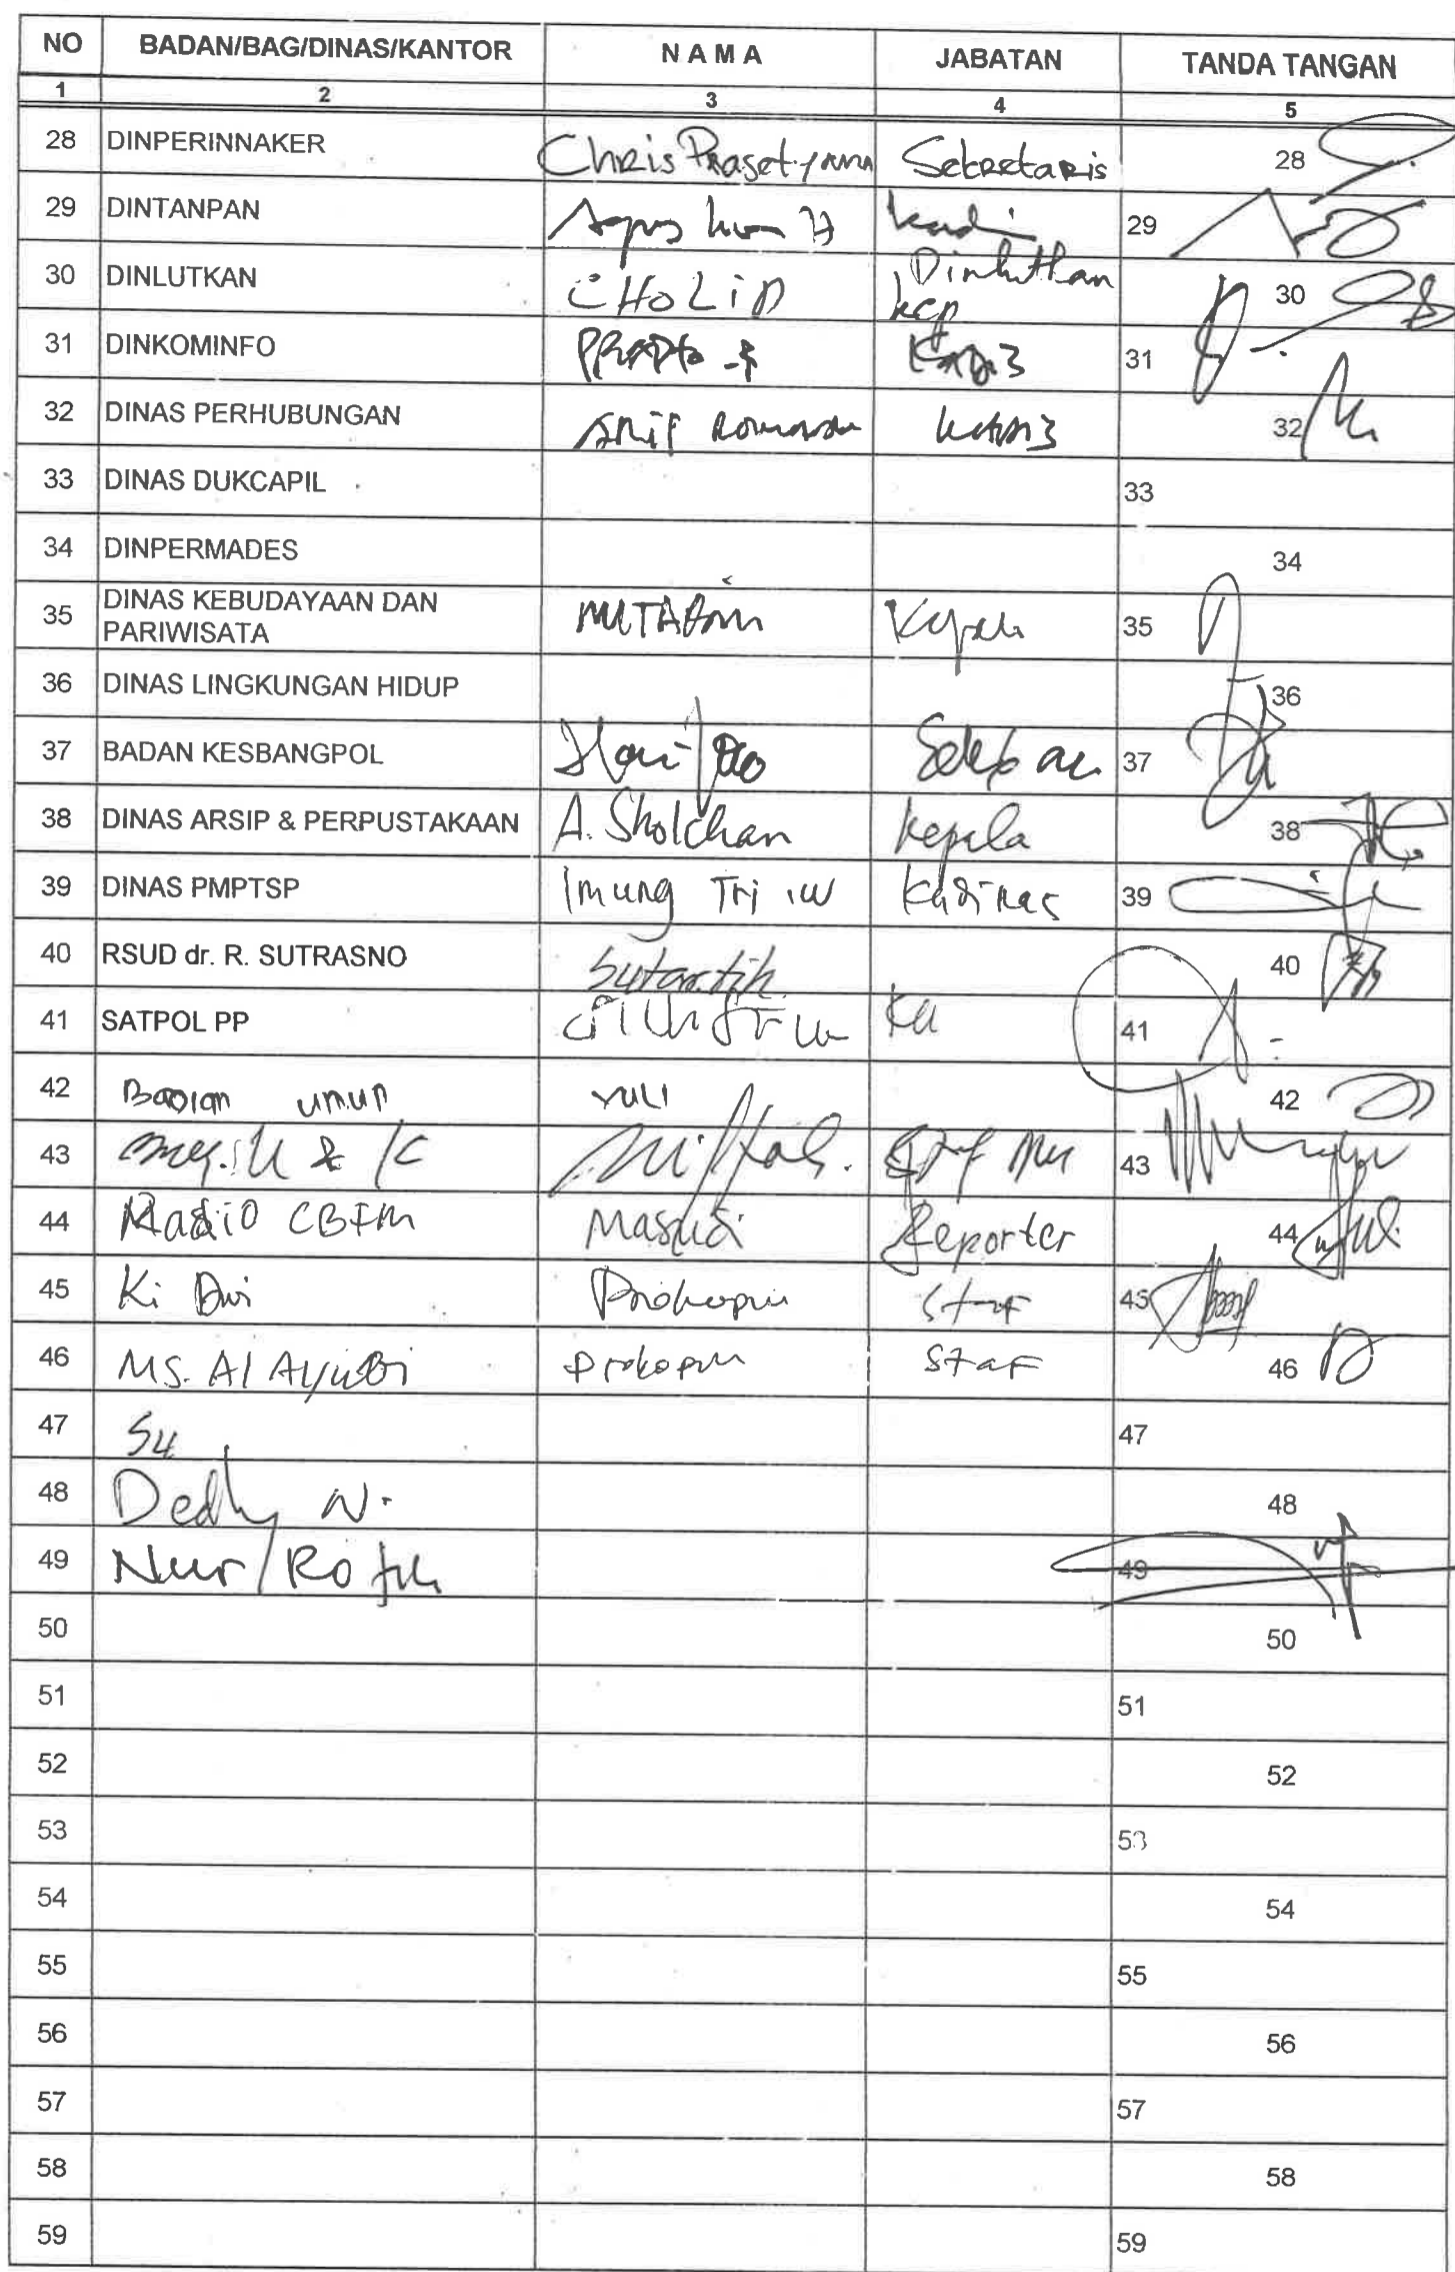 NO BADAN/BAG/DINAS/KANTOR N A M A JABATAN TANDA TANGAN
1 2 3 4 5
28 DINPERINNAKER Chris Prasetyawan Sekretaris 28
29 DINTANPAN Agus 29
30 DINLUTKAN CHOLID Dinlutkan 30
31 DINKOMINFO 31
32 DINAS PERHUBUNGAN Arif 32
33 DINAS DUKCAPIL 33
34 DINPERMADES 34
35 DINAS KEBUDAYAAN DAN
PARIWISATA Kepala 35
36 DINAS LINGKUNGAN HIDUP 36
37 BADAN KESBANGPOL 37
38 DINAS ARSIP & PERPUSTAKAAN A. Sholchan Kepala 38
39 DINAS PMPTSP Imung Tri W Kadinas 39
40 RSUD dr. R. SUTRASNO Sutartik 40
41 SATPOL PP Ka 41
42 Bagian umum YULI 42
43 Miftah. 43
44 Radio CBFM Masudi Reporter 44
45 Ki Dwi Prokopim Staf 45
46 MS. Al Ayubi Prokopim Staf 46
47 Su 47
48 Dedhy N. 48
49 Nur Rofik 49
50 50
51 51
52 52
53 53
54 54
55 55
56 56
57 57
58 58
59 59